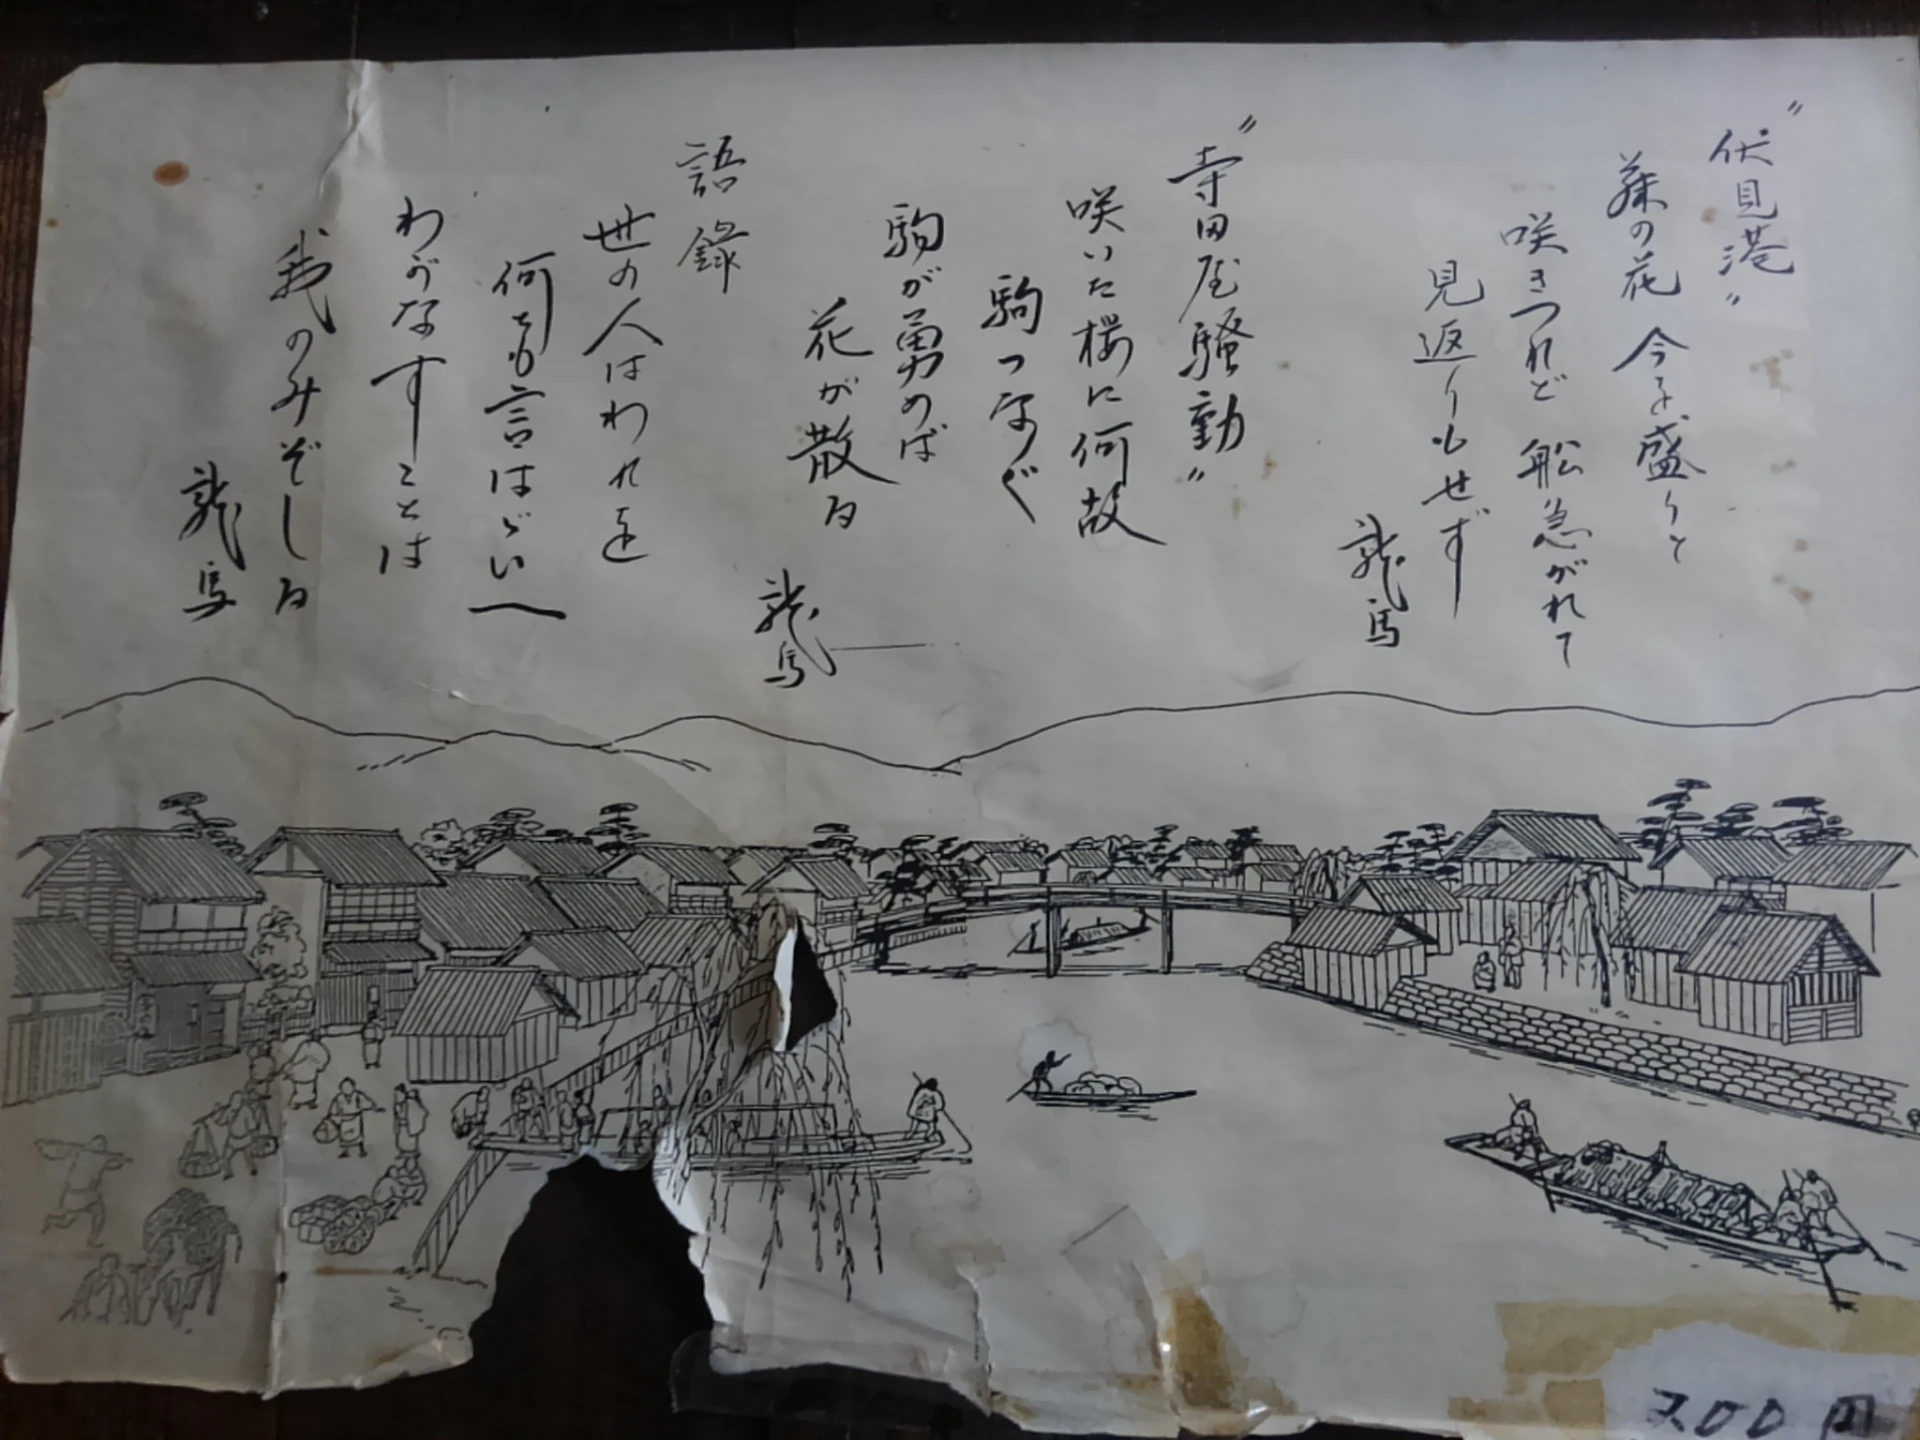 “伏見港”
藤の花 今を盛りと
咲きつれど 船急がれて
見返りもせず
龍馬
“寺田屋騒動”
咲いた櫻に何故
駒つなぐ
駒が勇めば
花が散る
龍馬
語録
世の人はわれを
何とも言はゞいへ
わがなすことは
我のみぞしる
龍馬
200円